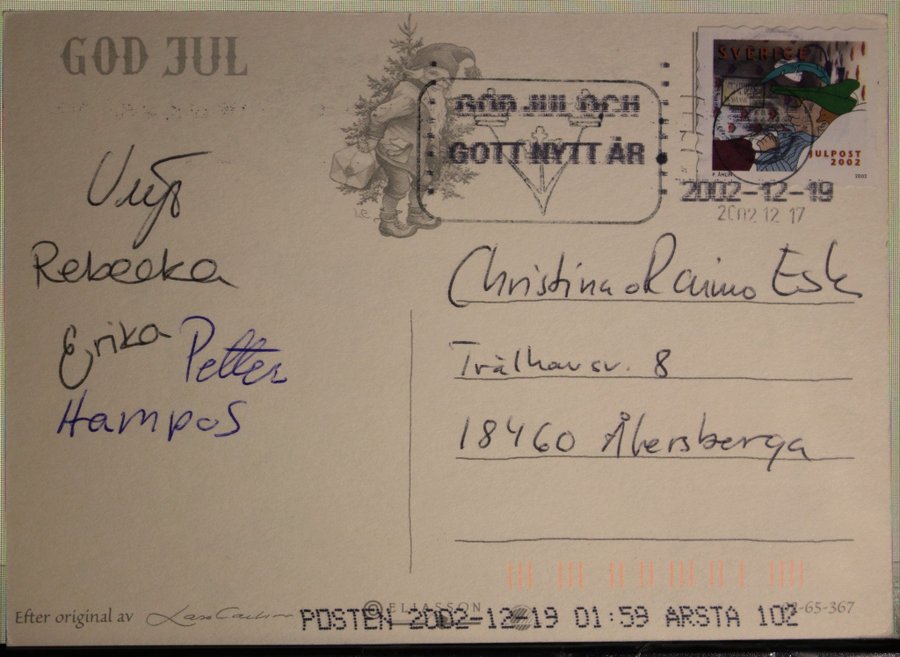 GOD JUL
GOD JUL OCH
GOTT NYTT ÅR
SVERIGE
JULPOST
2002
2002
2002-12-19
2002 12 17
Rebecka
Erika Petter
Hampus
Christina o Raimo Esk
Trålhavsv. 8
18460 Åkersberga
Efter original av
© ELIASSON
POSTEN 2002-12-19 01:59 ARSTA 102
-65-367